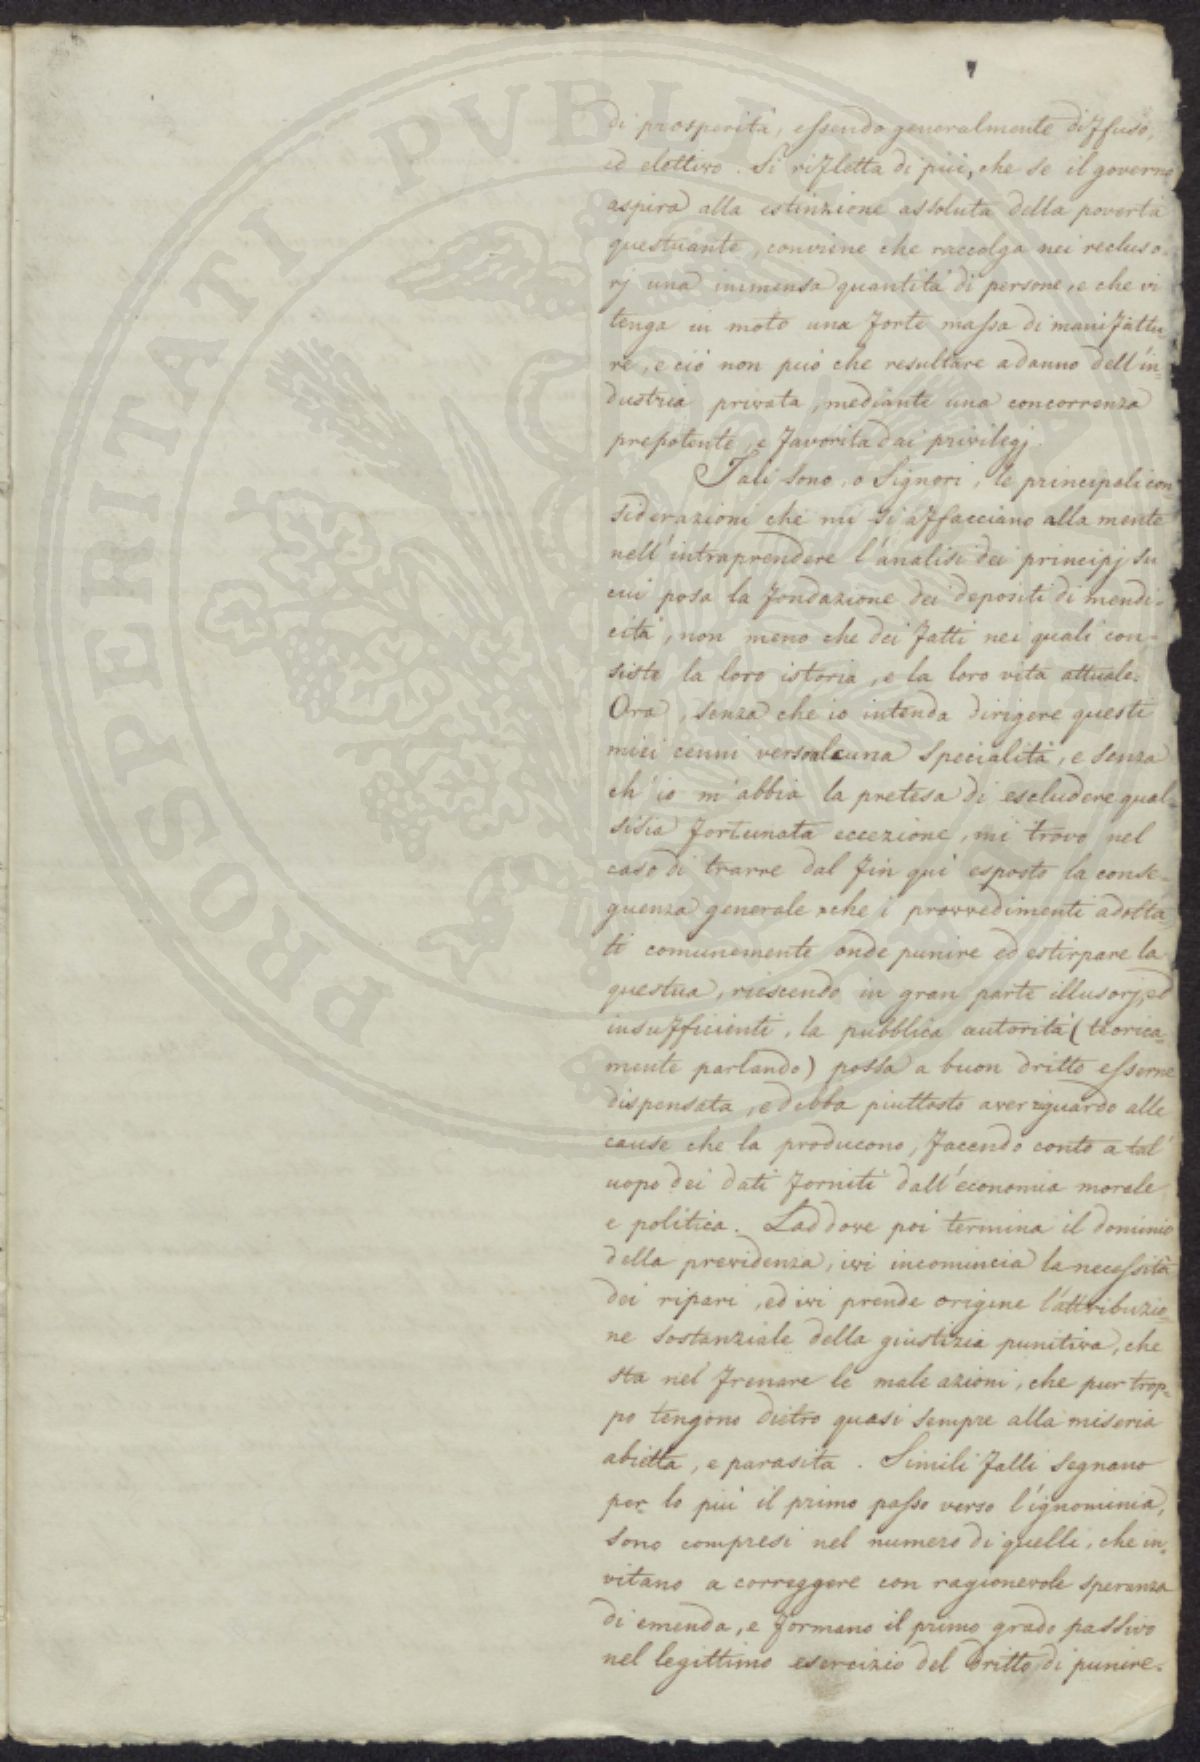 7
di prosperità, essendo generalmente diffuso,
ed elettivo. Si rifletta di più, che se il governo
aspira alla estinzione assoluta della povertà
questuante, conviene che raccolga nei recluso-
rj una immensa quantità di persone, e che vi
tenga in moto una forte massa di manifattu-
re, e ciò non può che resultare a danno dell'in-
dustria privata, mediante una concorrenza
prepotente, e favorita dai privilegj.
Tali sono, o Signori, le principali con-
siderazioni che mi si affacciano alla mente
nell'intraprendere l'analisi dei principj su
cui posa la fondazione dei depositi di mendi-
cità, non meno che dei fatti nei quali con-
siste la loro istoria, e la loro vita attuale.
Ora, senza che io intenda dirigere questi
miei cenni verso alcuna specialità, e senza
ch'io m'abbia la pretesa di escludere qual-
sisia fortunata eccezione, mi trovo nel
caso di trarre dal fin qui esposto la conse-
guenza generale che i provvedimenti adotta-
ti comunemente onde punire ed estirpare la
questua, riescendo in gran parte illusorj, ed
insufficienti, la pubblica autorità (teorica-
mente parlando) possa a buon dritto esserne
dispensata, e debba piuttosto aver riguardo alle
cause che la producono, facendo conto a tal'
uopo dei dati forniti dall'economia morale
e politica. Laddove poi termina il dominio
della previdenza, ivi incomincia la necessità
dei ripari, ed ivi prende origine l'attribuzio-
ne sostanziale della giustizia punitiva, che
sta nel frenare le male azioni, che pur trop-
po tengono dietro quasi sempre alla miseria
abietta, e parasita. Simili falli segnano
per lo più il primo passo verso l'ignominia,
sono compresi nel numero di quelli, che in-
vitano a correggere con ragionevole speranza
di emenda, e formano il primo grado passivo
nel legittimo esercizio del dritto di punire.
PROSPERITATI PVBLI